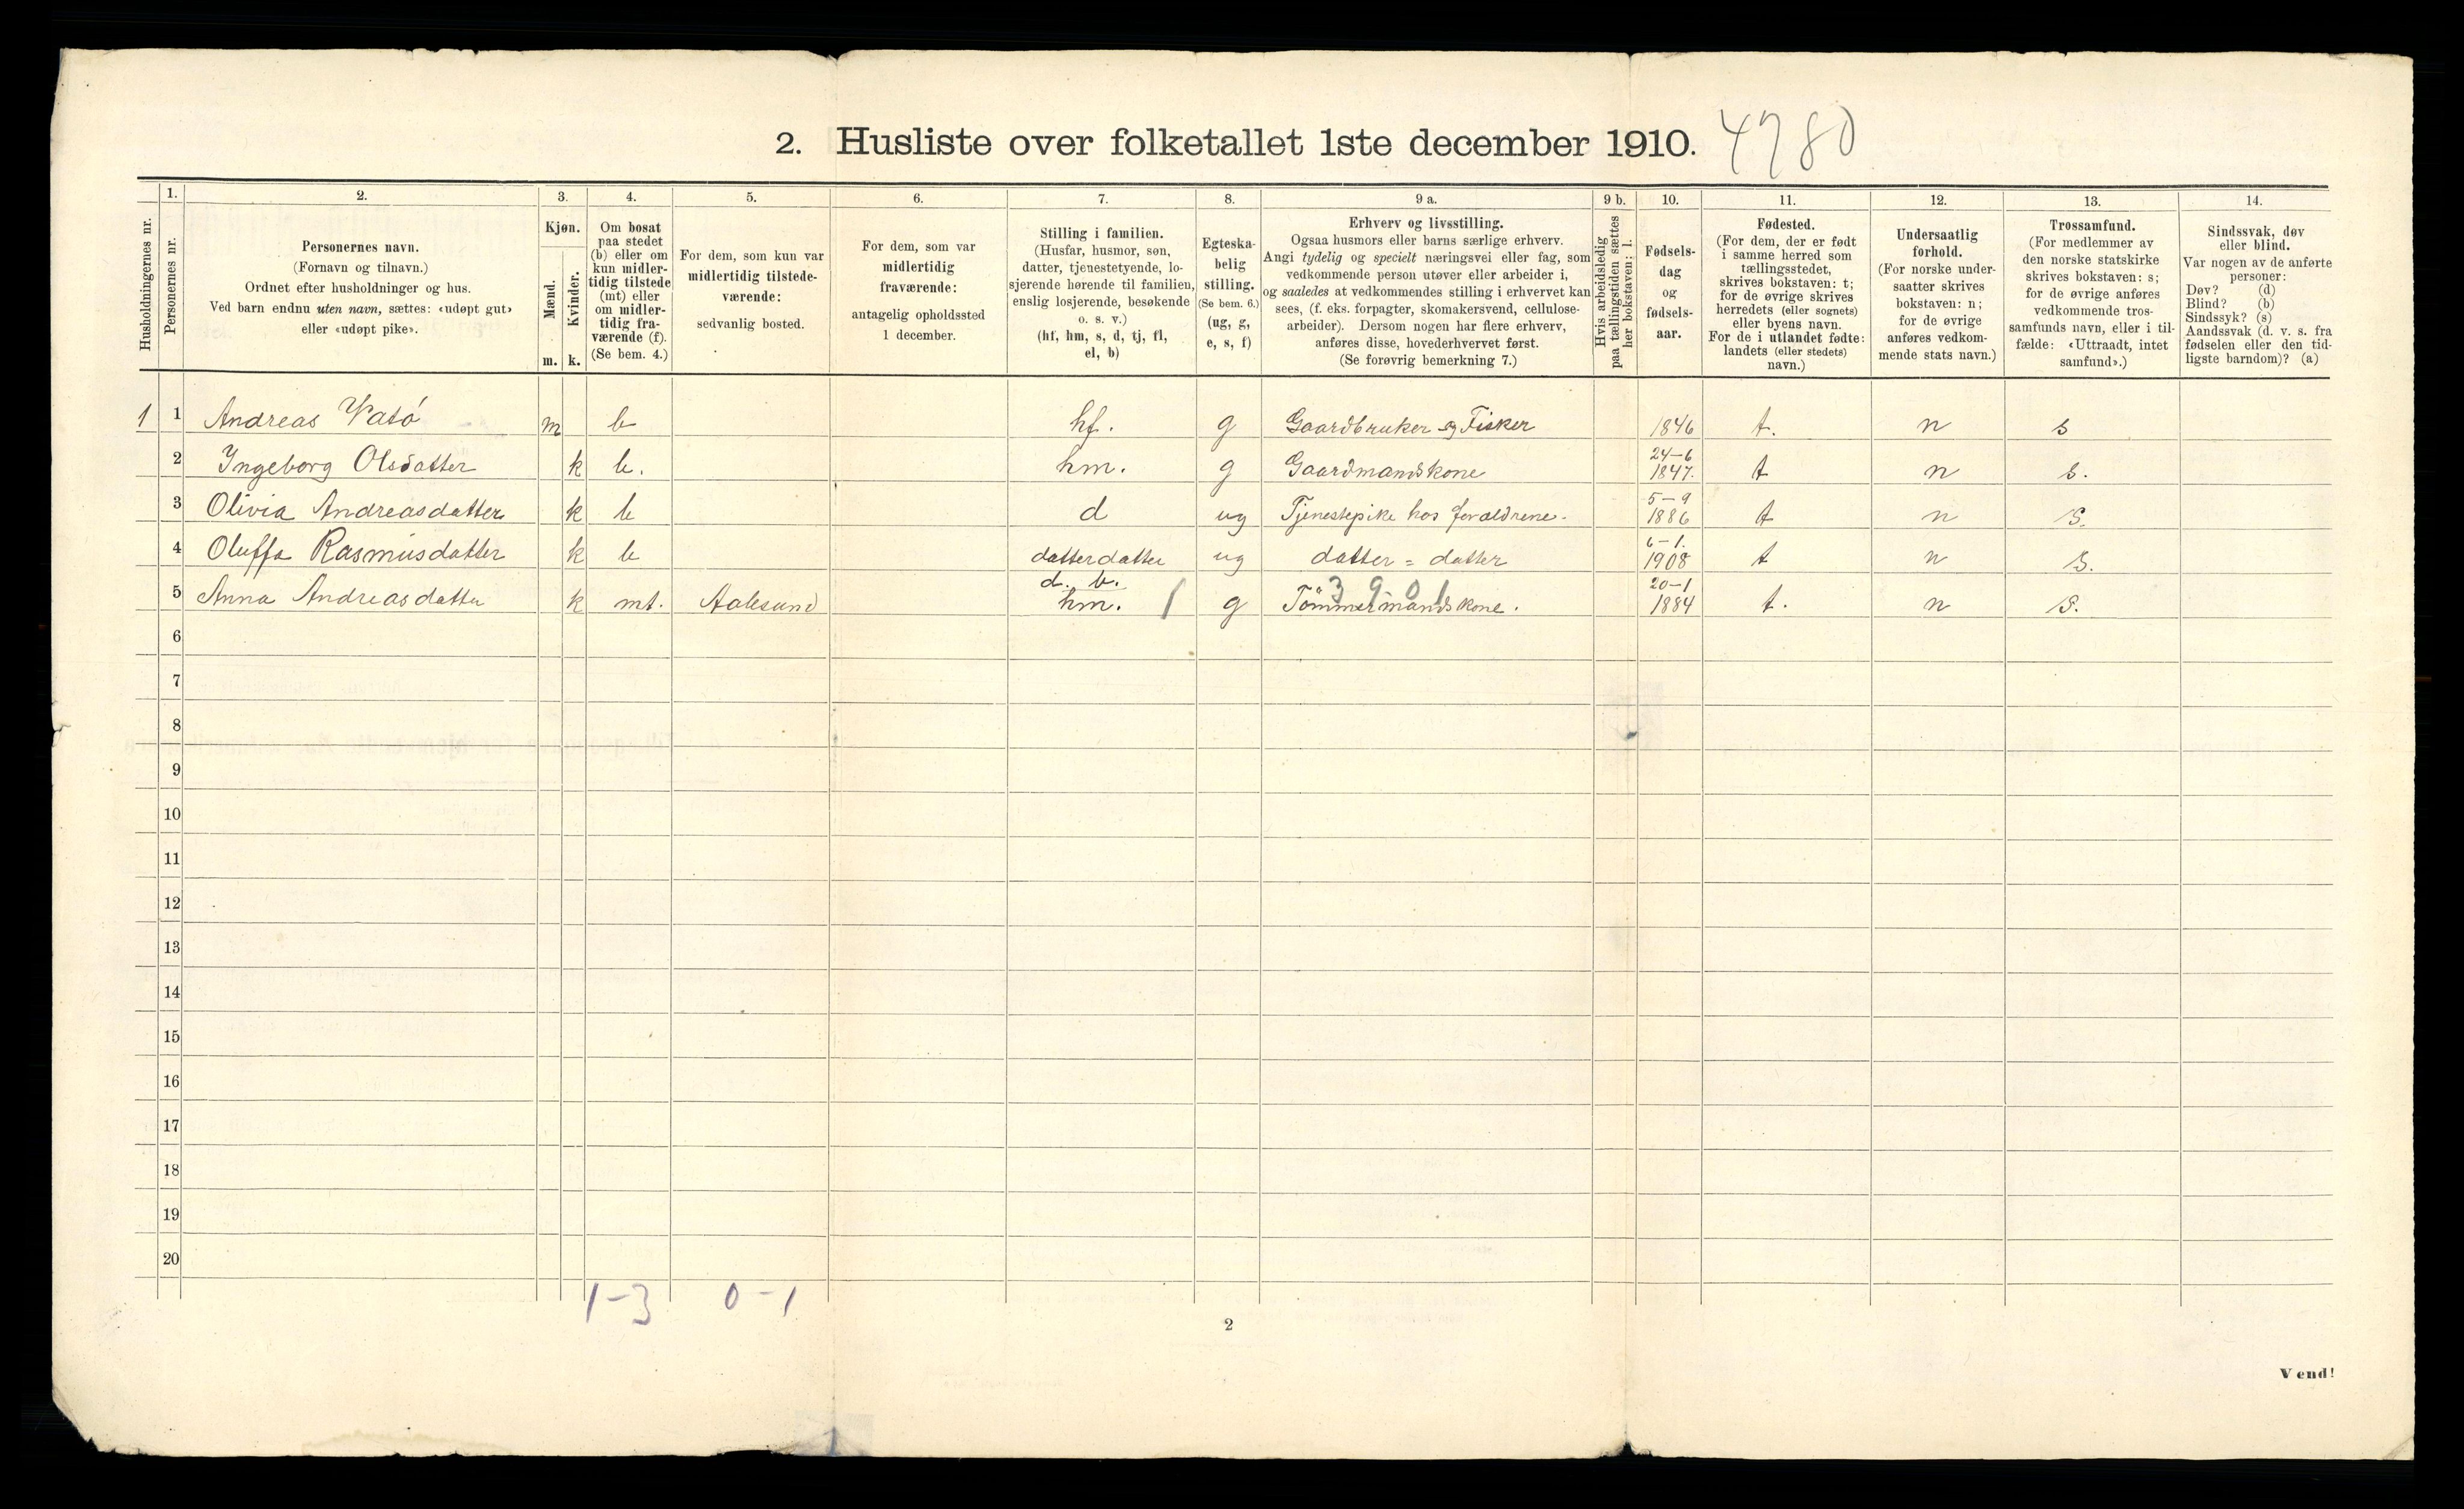 2. Husliste over folketallet 1ste december 1910. 4780
Husholdningernes nr.
1. Personernes nr.
2.
Personernes navn.
(Fornavn og tilnavn.)
Ordnet efter husholdninger og hus.
Ved barn endnu uten navn, sættes: «udøpt gut»
eller «udøpt pike».
3.
Kjøn.
Mænd. m.
Kvinder. k.
4.
Om bosat
paa stedet
(b) eller om
kun midler-
tidig tilstede
(mt) eller
om midler-
tidig fra-
værende (f).
(Se bem. 4.)
5.
For dem, som kun var
midlertidig tilstede-
værende:
sedvanlig bosted.
6.
For dem, som var
midlertidig
fraværende:
antagelig opholdssted
1 december.
7.
Stilling i familien.
(Husfar, husmor, søn,
datter, tjenestetyende, lo-
sjerende hørende til familien,
enslig losjerende, besøkende
o. s. v.)
(hf, hm, s, d, tj, fl,
el, b)
8.
Egteska-
belig
stilling.
(Se bem. 6.)
(ug, g,
e, s, f)
9 a.
Erhverv og livsstilling.
Ogsaa husmors eller barns særlige erhverv.
Angi tydelig og specielt næringsvei eller fag, som
vedkommende person utøver eller arbeider i,
og saaledes at vedkommendes stilling i erhvervet kan
sees, (f. eks. forpagter, skomakersvend, cellulose-
arbeider). Dersom nogen har flere erhverv,
anføres disse, hovederhvervet først.
(Se forøvrig bemerkning 7.)
9 b.
Hvis arbeidsledig
paa tællingstiden sættes
her bokstaven: l.
10.
Fødsels-
dag
og
fødsels-
aar.
11.
Fødested.
(For dem, der er født
i samme herred som
tællingsstedet,
skrives bokstaven: t;
for de øvrige skrives
herredets (eller sognets)
eller byens navn.
For de i utlandet fødte:
landets (eller stedets)
navn.)
12.
Undersaatlig
forhold.
(For norske under-
saatter skrives
bokstaven: n;
for de øvrige
anføres vedkom-
mende stats navn.)
13.
Trossamfund.
(For medlemmer av
den norske statskirke
skrives bokstaven: s;
for de øvrige anføres
vedkommende tros-
samfunds navn, eller i til-
fælde: «Uttraadt, intet
samfund».)
14.
Sindssvak, døv
eller blind.
Var nogen av de anførte
personer:
Døv? (d)
Blind? (b)
Sindssyk? (s)
Aandssvak (d. v. s. fra
fødselen eller den tid-
ligste barndom)? (a)
1 1 Andreas Vatö m b hf. g Gaardbruker og Fisker 1846 t. n s
2 Ingeborg Olsdatter k b. hm. g Gaardmandskone 24-6 1847. t n s.
3 Olivia Andreasdatter k b d ug Tjenestepike hos forældrene. 5-9 1886 t n S.
4 Oluffa Rasmusdatter k b datterdatter ug datter = datter 6-1. 1908 t n S.
5 Anna Andreasdatter k mt. Aalesund d. b. hm. 1 g 3901 Tömmermandskone. 20-1 1884 t. n S.
6
7
8
9
10
11
12
13
14
15
16
17
18
19
20
1-3 0-1
2
Vend!